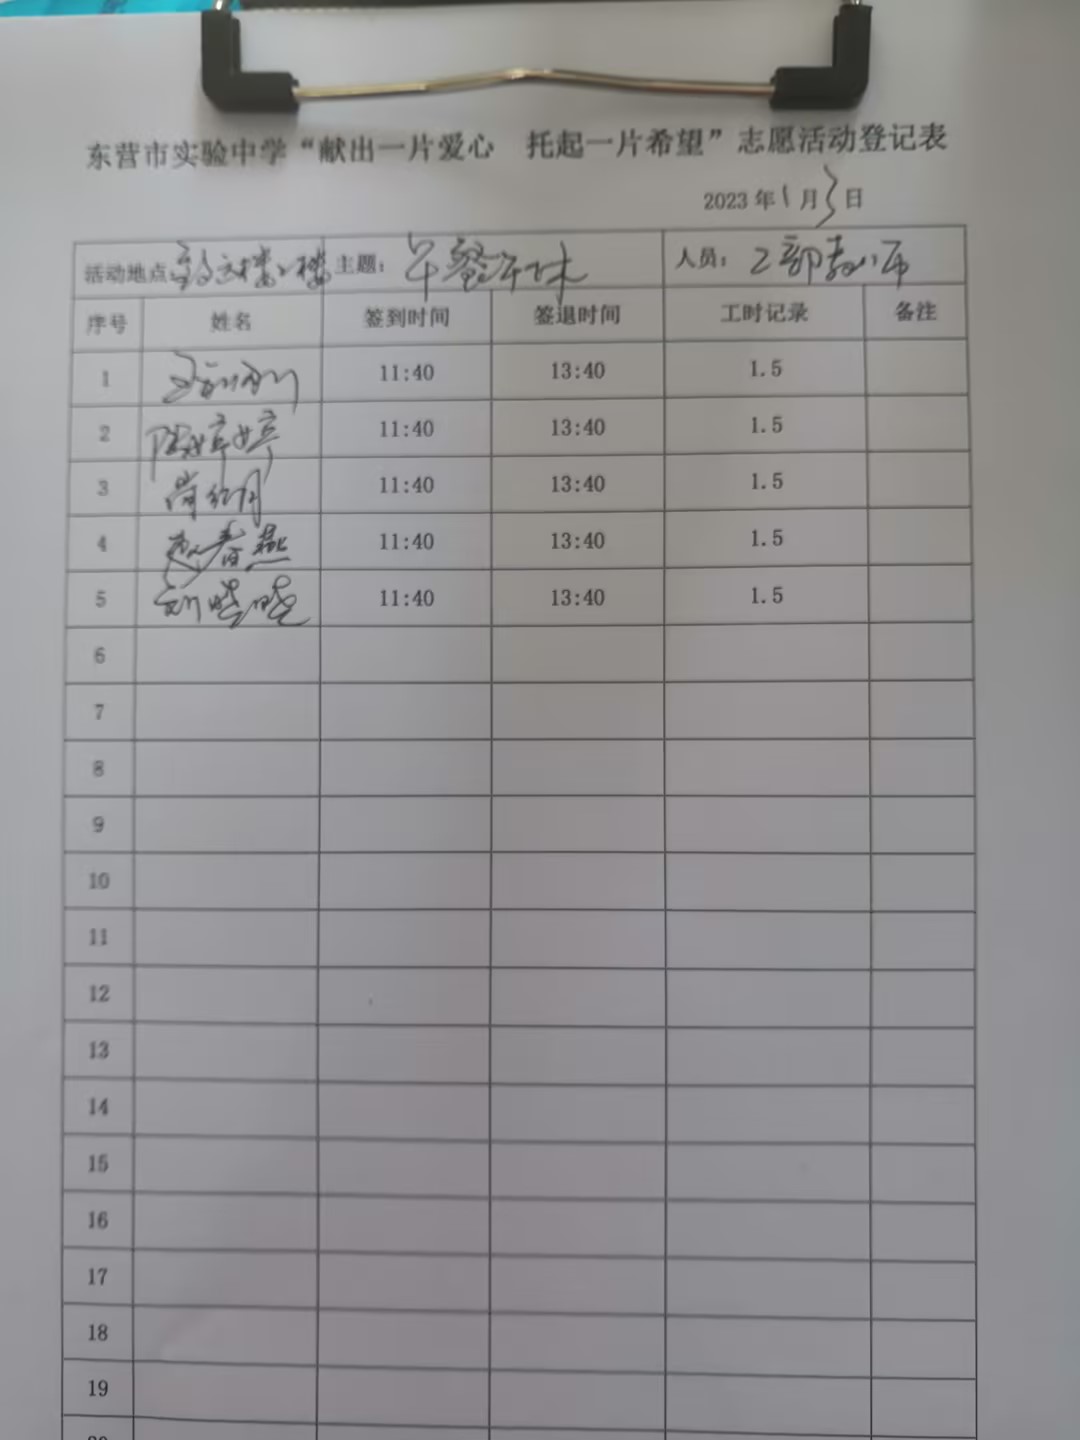 东营市实验中学“献出一片爱心 托起一片希望”志愿活动登记表
2023 年 1 月 3 日
活动地点: 楼 楼 主题: 午餐午休 人员: 2部教师
序号 姓名 签到时间 签退时间 工时记录 备注
1 11:40 13:40 1.5
2 陈婷婷 11:40 13:40 1.5
3 尚红月 11:40 13:40 1.5
4 赵春燕 11:40 13:40 1.5
5 刘晓晓 11:40 13:40 1.5
6
7
8
9
10
11
12
13
14
15
16
17
18
19
20